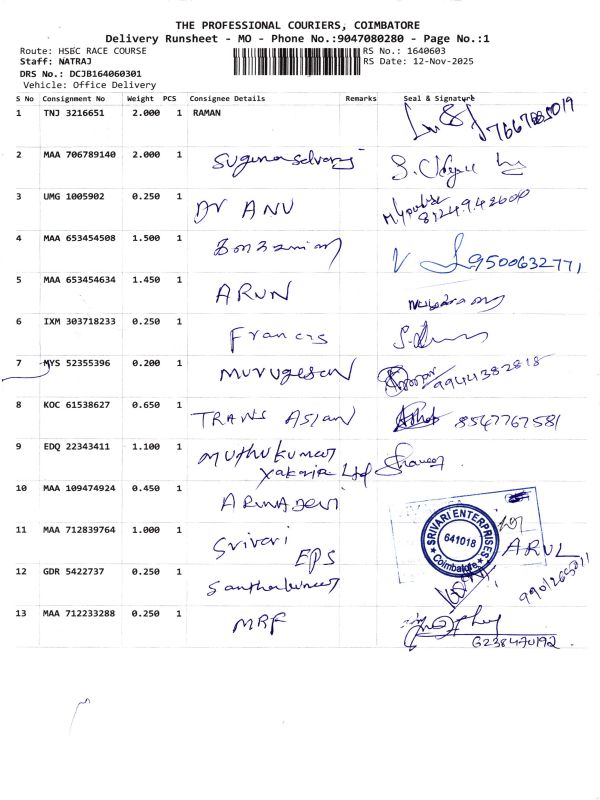 THE PROFESSIONAL COURIERS, COIMBATORE
Delivery Runsheet - MO - Phone No.:9047080280 - Page No.:1
Route: HSBC RACE COURSE
RS No.: 1640603
Staff: NATRAJ
RS Date: 12-Nov-2025
DRS No.: DCJB164060301
Vehicle: Office Delivery
S No Consignment No Weight PCS Consignee Details Remarks Seal & Signature
1 TNJ 3216651 2.000 1 RAMAN
2 MAA 706789140 2.000 1
3 UMG 1005902 0.250 1 Dr ANU
4 MAA 653454508 1.500 1 9500632771
5 MAA 653454634 1.450 1 ARUN
6 IXM 303718233 0.250 1 Francis
7 MYS 52355396 0.200 1 Murugesan 9944382818
8 KOC 61538627 0.650 1 TRANS ASIAN 8547767581
9 EDQ 22343411 1.100 1 Muthukumar
10 MAA 109474924 0.450 1
11 MAA 712839764 1.000 1 Srivari EPS
SRIVARI ENTERPRISES
641018
Coimbatore
ARUL
12 GDR 5422737 0.250 1
13 MAA 712233288 0.250 1 MRF